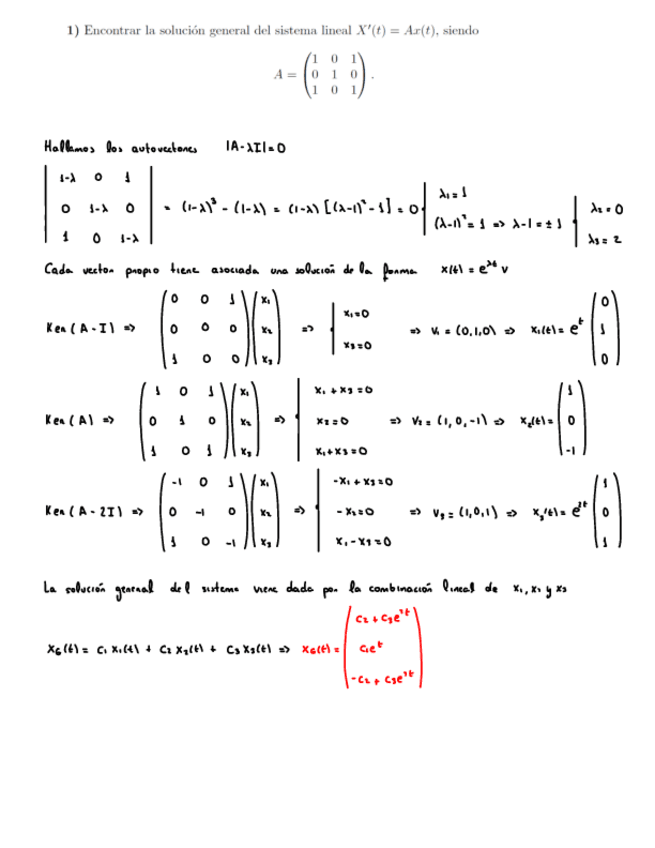 1) Encontrar la solución general del sistema lineal X'(t) = Ax(t), siendo
A = (1 0 1
0 1 0
1 0 1).
Hallamos los autovectores |A-λI|=0
|1-λ 0 1
0 1-λ 0
1 0 1-λ| = (1-λ)³ - (1-λ) = (1-λ)[(λ-1)² - 1] = 0 | λ₁ = 1
(λ-1)² = 1 => λ-1 = ± 1 | λ₂ = 0
λ₃ = 2
Cada vector propio tiene asociada una solución de la forma x(t) = e^λt v
Ker(A-I) => (0 0 1
0 0 0
1 0 0)(x₁
x₂
x₃) => | x₁=0
x₃=0 => v₁ = (0,1,0) => x₁(t) = e^t (0
1
0)
Ker(A) => (1 0 1
0 1 0
1 0 1)(x₁
x₂
x₃) => | x₁ + x₃ = 0
x₂ = 0
x₁+x₃ = 0 => v₂ = (1, 0, -1) => x₂(t) = (1
0
-1)
Ker(A-2I) => (-1 0 1
0 -1 0
1 0 -1)(x₁
x₂
x₃) => | -x₁ + x₃ = 0
-x₂ = 0
x₁ - x₃ = 0 => v₃ = (1,0,1) => x₃(t) = e^2t (1
0
1)
La solución general del sistema viene dada por la combinación lineal de x₁, x₂ y x₃
x_G(t) = c₁ x₁(t) + c₂ x₂(t) + c₃ x₃(t) => x_G(t) = (c₂ + c₃e^2t
c₁e^t
-c₂ + c₃e^2t)